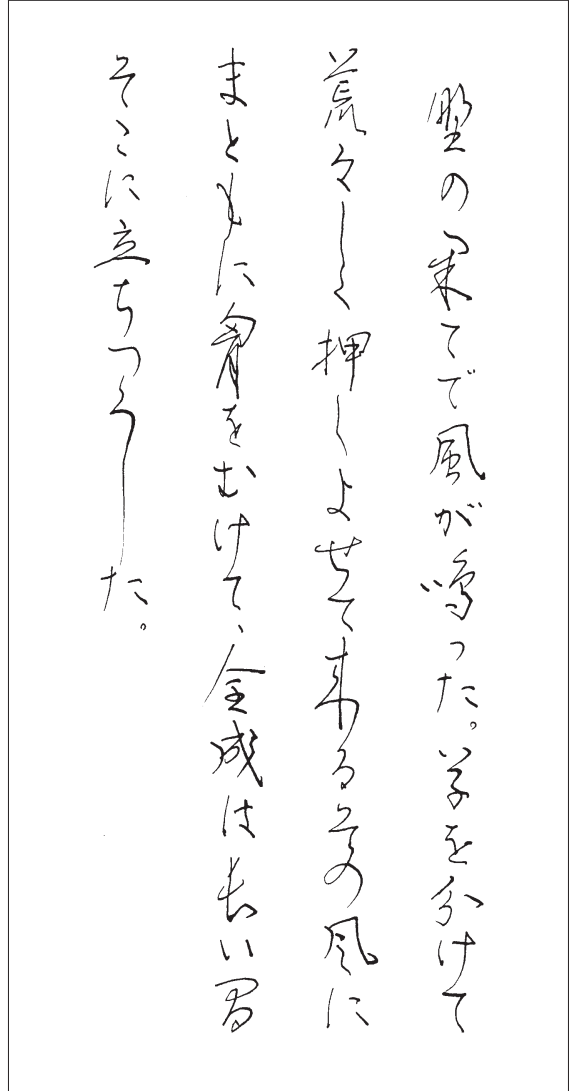 野の果てで風が鳴った。草を分けて
荒々しく押しよせて来るその風に
まともに胸をむけて、全成は長い間
そこに立ちつくした。